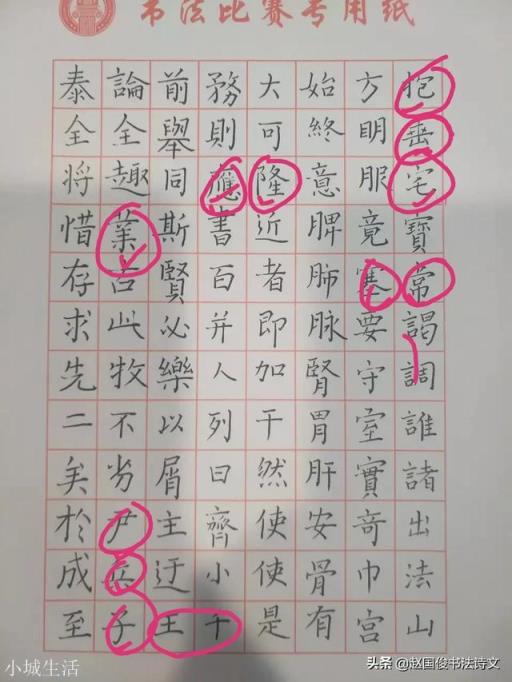 书法比赛专用纸
抱垂宅寶常謁調誰諸出法山
方明服竟塞要守室實奇巾宮
始終意脾肺脉腎胃肝安骨有
大可隆近者即加干然使使是
務則應書百并人列曰齊小千
前舉同斯賢必樂以屑主迂王
論全趣業古此牧不劣尹兵子
泰全将惜存求先二矣於成至
小城生活
头条 @赵国俊书法诗文